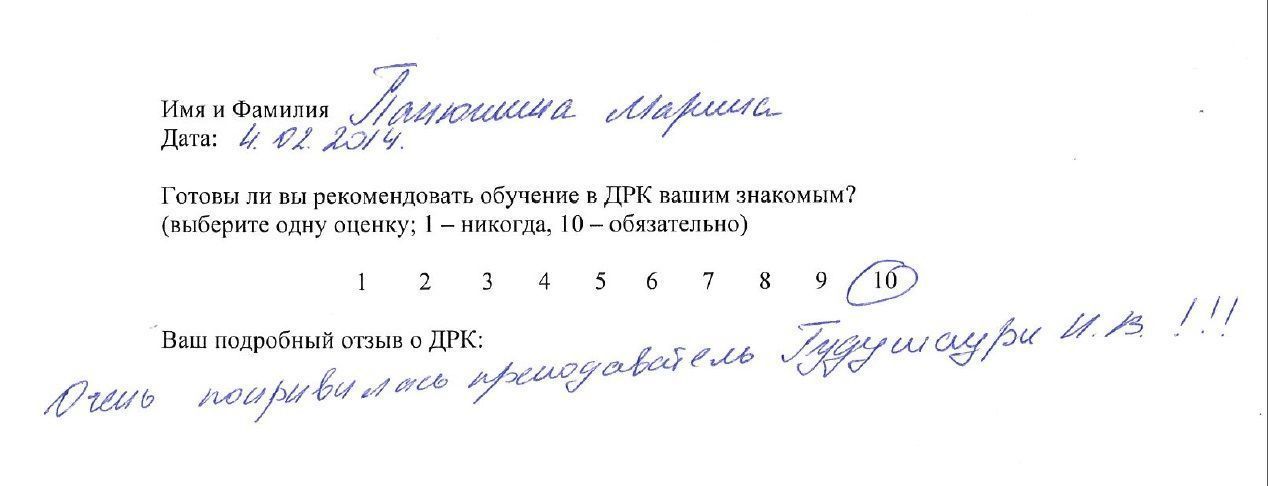 Имя и Фамилия Панюшина Марина
Дата: 4.02.2014.
Готовы ли вы рекомендовать обучение в ДРК вашим знакомым?
(выберите одну оценку; 1 – никогда, 10 – обязательно)
1 2 3 4 5 6 7 8 9 10
Ваш подробный отзыв о ДРК:
Очень понравилась преподаватель Гудушаури И.В. !!!